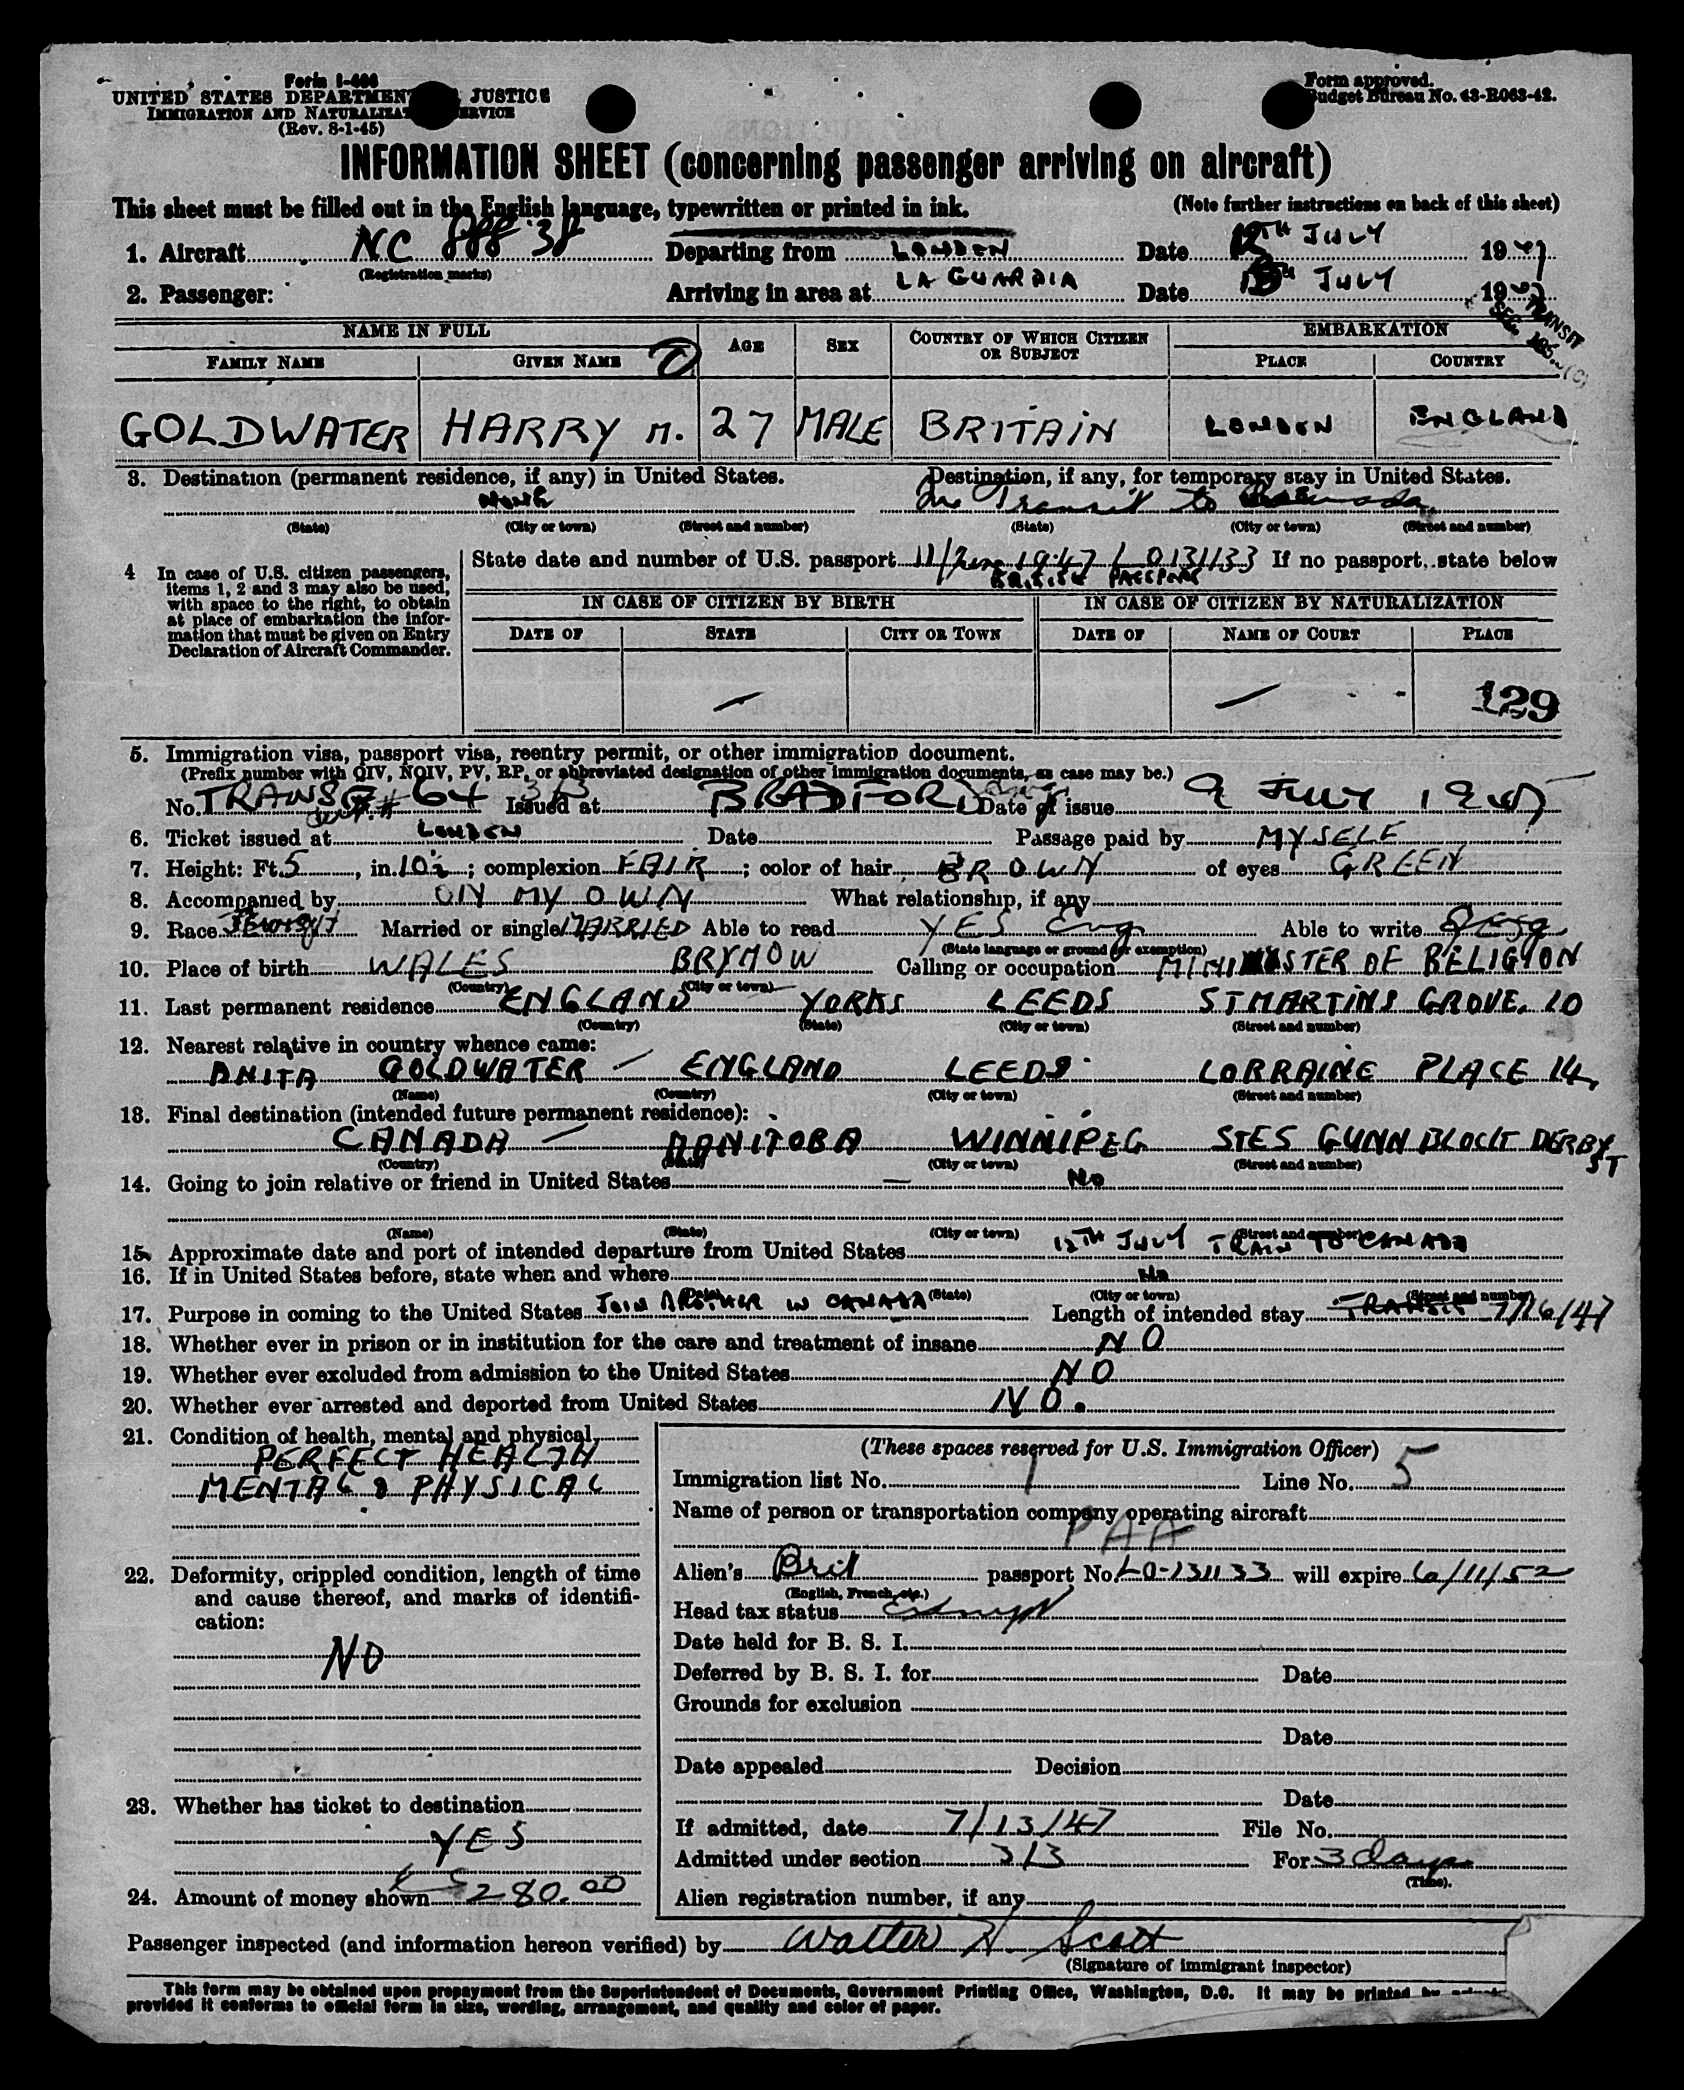 Form I-466
UNITED STATES DEPARTMENT JUSTICE
IMMIGRATION AND NATURALIZAT SERVICE
(Rev. 8-1-45)
Form approved.
Budget Bureau No. 43-R063-42.
INFORMATION SHEET (concerning passenger arriving on aircraft)
This sheet must be filled out in the English language, typewritten or printed in ink.
(Note further instructions on back of this sheet)
1. Aircraft NC 888 38 Departing from LONDON Date 12TH JULY 1947
(Registration marks)
2. Passenger: Arriving in area at LA GUARDIA Date 13TH JULY 1947
TRANSIT
NAME IN FULL AGE SEX COUNTRY OF WHICH CITIZEN OR SUBJECT EMBARKATION
FAMILY NAME GIVEN NAME PLACE COUNTRY
GOLDWATER HARRY M. 27 MALE BRITAIN LONDON ENGLAND
3. Destination (permanent residence, if any) in United States. Destination, if any, for temporary stay in United States.
None In Transit to Canada
(State) (City or town) (Street and number) (State) (City or town) (Street and number)
4 In case of U.S. citizen passengers, items 1, 2 and 3 may also be used, with space to the right, to obtain at place of embarkation the information that must be given on Entry Declaration of Aircraft Commander.
State date and number of U.S. passport 11/June 1947 L0131133 If no passport, state below
BRITISH PASSPORT
IN CASE OF CITIZEN BY BIRTH IN CASE OF CITIZEN BY NATURALIZATION
DATE OF STATE CITY OR TOWN DATE OF NAME OF COURT PLACE
129
5. Immigration visa, passport visa, reentry permit, or other immigration document.
(Prefix number with QIV, NQIV, PV, RP, or abbreviated designation of other immigration documents, as case may be.)
No. TRANS # 64 Issued at BRADFORD Date of issue 9 JULY 1947
6. Ticket issued at LONDON Date Passage paid by MYSELF
7. Height: Ft. 5, in. 10½; complexion FAIR; color of hair BROWN of eyes GREEN
8. Accompanied by ON MY OWN What relationship, if any
9. Race JEWISH Married or single MARRIED Able to read YES Eng Able to write YES
(State language or ground for exemption)
10. Place of birth WALES BRYMOW Calling or occupation MINISTER OF RELIGION
(Country) (City or town)
11. Last permanent residence ENGLAND YORKS LEEDS ST MARTINS GROVE. 10
(Country) (State) (City or town) (Street and number)
12. Nearest relative in country whence came:
ANITA GOLDWATER — ENGLAND LEEDS LORRAINE PLACE 14,
(Name) (Country) (City or town) (Street and number)
13. Final destination (intended future permanent residence):
CANADA — MANITOBA WINNIPEG STE5 GUNN BLOCK DERBY ST
(Country) (State) (City or town) (Street and number)
14. Going to join relative or friend in United States — No
(Name) (State) (City or town) (Street and number)
15. Approximate date and port of intended departure from United States 12TH JULY TRAIN TO CANADA
16. If in United States before, state when and where No
(Date) (State) (City or town) (Street and number)
17. Purpose in coming to the United States JOIN BROTHER IN CANADA Length of intended stay TRANSIT 7/16/47
18. Whether ever in prison or in institution for the care and treatment of insane NO
19. Whether ever excluded from admission to the United States NO
20. Whether ever arrested and deported from United States NO.
21. Condition of health, mental and physical
PERFECT HEALTH
MENTAL & PHYSICAL
22. Deformity, crippled condition, length of time and cause thereof, and marks of identification:
NO
23. Whether has ticket to destination
YES
24. Amount of money shown 280.00
(These spaces reserved for U.S. Immigration Officer)
Immigration list No. 1 Line No. 5
Name of person or transportation company operating aircraft
PAA
Alien's Brit passport No. L0-131133 will expire 6/11/52
(English, French, etc.)
Head tax status Exempt
Date held for B. S. I.
Deferred by B. S. I. for Date
Grounds for exclusion
Date
Date appealed Decision
Date
If admitted, date 7/13/47 File No.
Admitted under section 3/3 For 3 days
(Time).
Alien registration number, if any
Passenger inspected (and information hereon verified) by Walter H. Scott
(Signature of immigrant inspector)
This form may be obtained upon prepayment from the Superintendent of Documents, Government Printing Office, Washington, D.C. It may be printed by
provided it conforms to official form in size, wording, arrangement, and quality and color of paper.